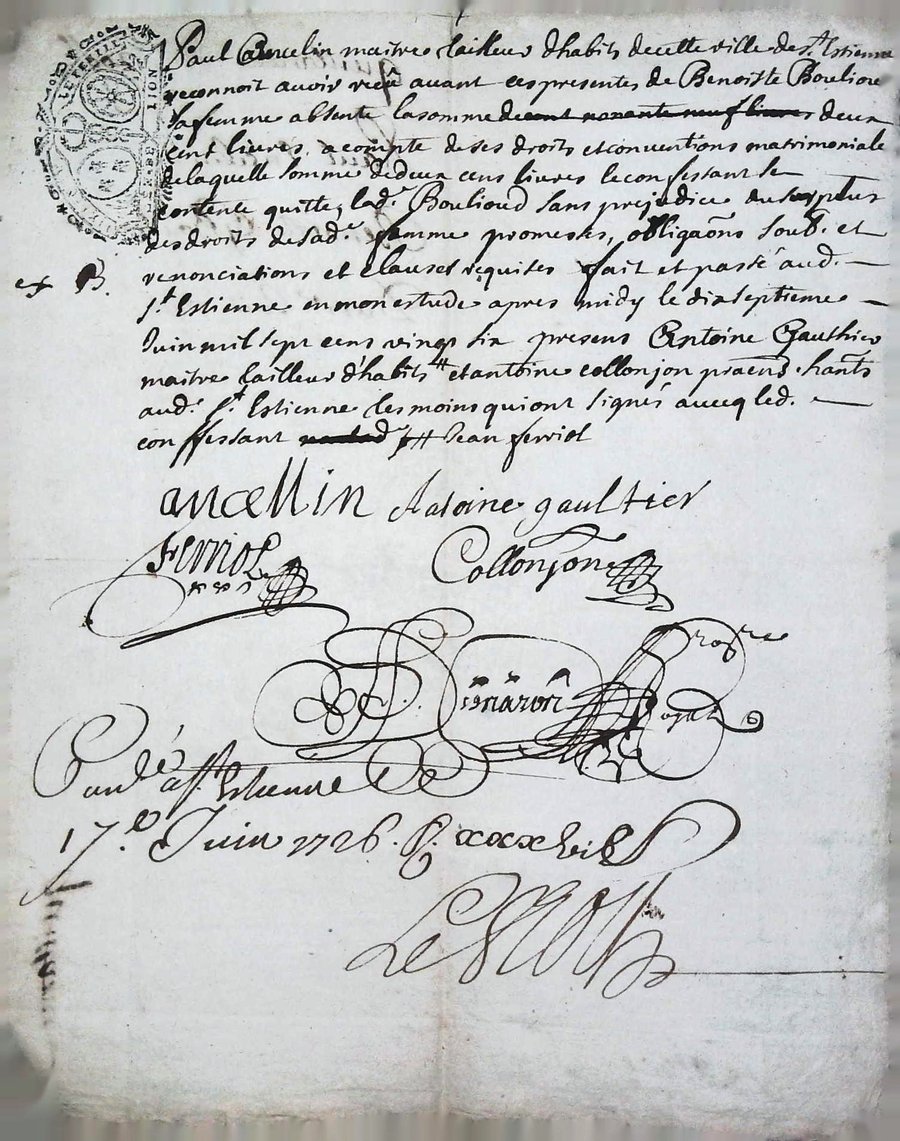 Paul Ancelin maitre tailleur dhabits de cette ville de St Estienne
reconnoit avoir receu avant ces presentes de Benoiste Boulioud
sa femme absente la somme de cent nonante neuf livres deux
cent livres a compte de ses droits et conventions matrimoniale
de laquelle somme de deux cens livres le confessant se
contente quitte lade. Boulioud sans prejudice du surplus
des droits de sade. femme promesses, obligaons soub. et
renonciations et clauses requises fait et passé aud.
St. Estienne en mon estude apres midy le dix septieme
Juin mil sept cens vingt six presens Antoine Gauthier
maitre tailleur d'habits et antoine collonjon praens. hants
aud. St. Estienne tesmoins qui ont signés avecq led.
confessant Jean ferriol
ancellin Antoine gaultier
Ferriol
Collonjon
nore
Royal
St Estienne le
17e Juin 1726.